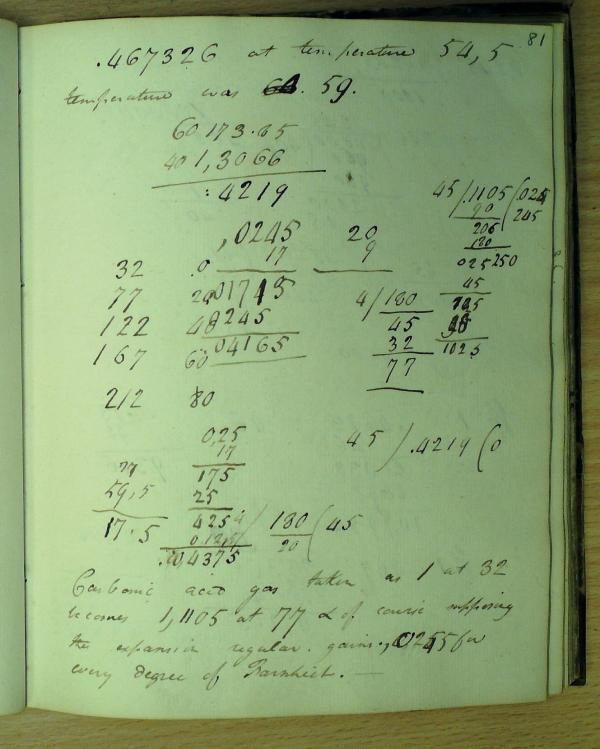 81
.467326 at temperature 54,5
temperature was 59.
60 173.65
40 1,3066
:4219
45/.1105(024
90 245
205
180
025250
45
1025
,0245 20
17 9
32 .0
77 20 01715
122 40 0245
167 60 04165
212 80
4/180
45
32
77
0,25
17
175
25
425
.04375
77
59,5
17.5
180 (45
20
45 ) .4219 (0
Carbonic acid gas taken as 1 at 32
becomes 1,1105 at 77 & of course supposing
the expansion regular gains
every degree of Farnheit. —